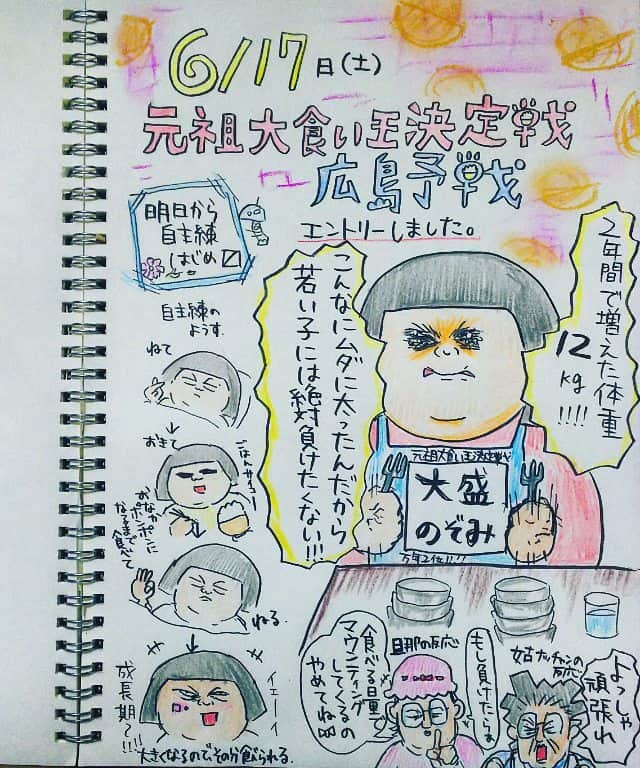 6/17日(土)
元祖大食い王決定戦
広島予戦
エントリーしました。
明日から
自主練
はじめ〼
自主練の
ようす。
ねて
おきて
ごはんサイコー
おなかポンポンに
なるまで食べて
ねる。
成長期〜!!!!
イェーイ
大きくなるので、その分食べられる。
2年間で増えた体重
12
kg
!!!!
こんなにムダに太ったんだから
若い子には絶対負けたくない!!!
元祖大食い王決定戦
大盛
のぞみ
万年2位!!!
旦那の反応
食べる日量で
マウンティング
してくるの
やめてね
もし負けたら
姑
の反応
よっしゃ
頑張れ